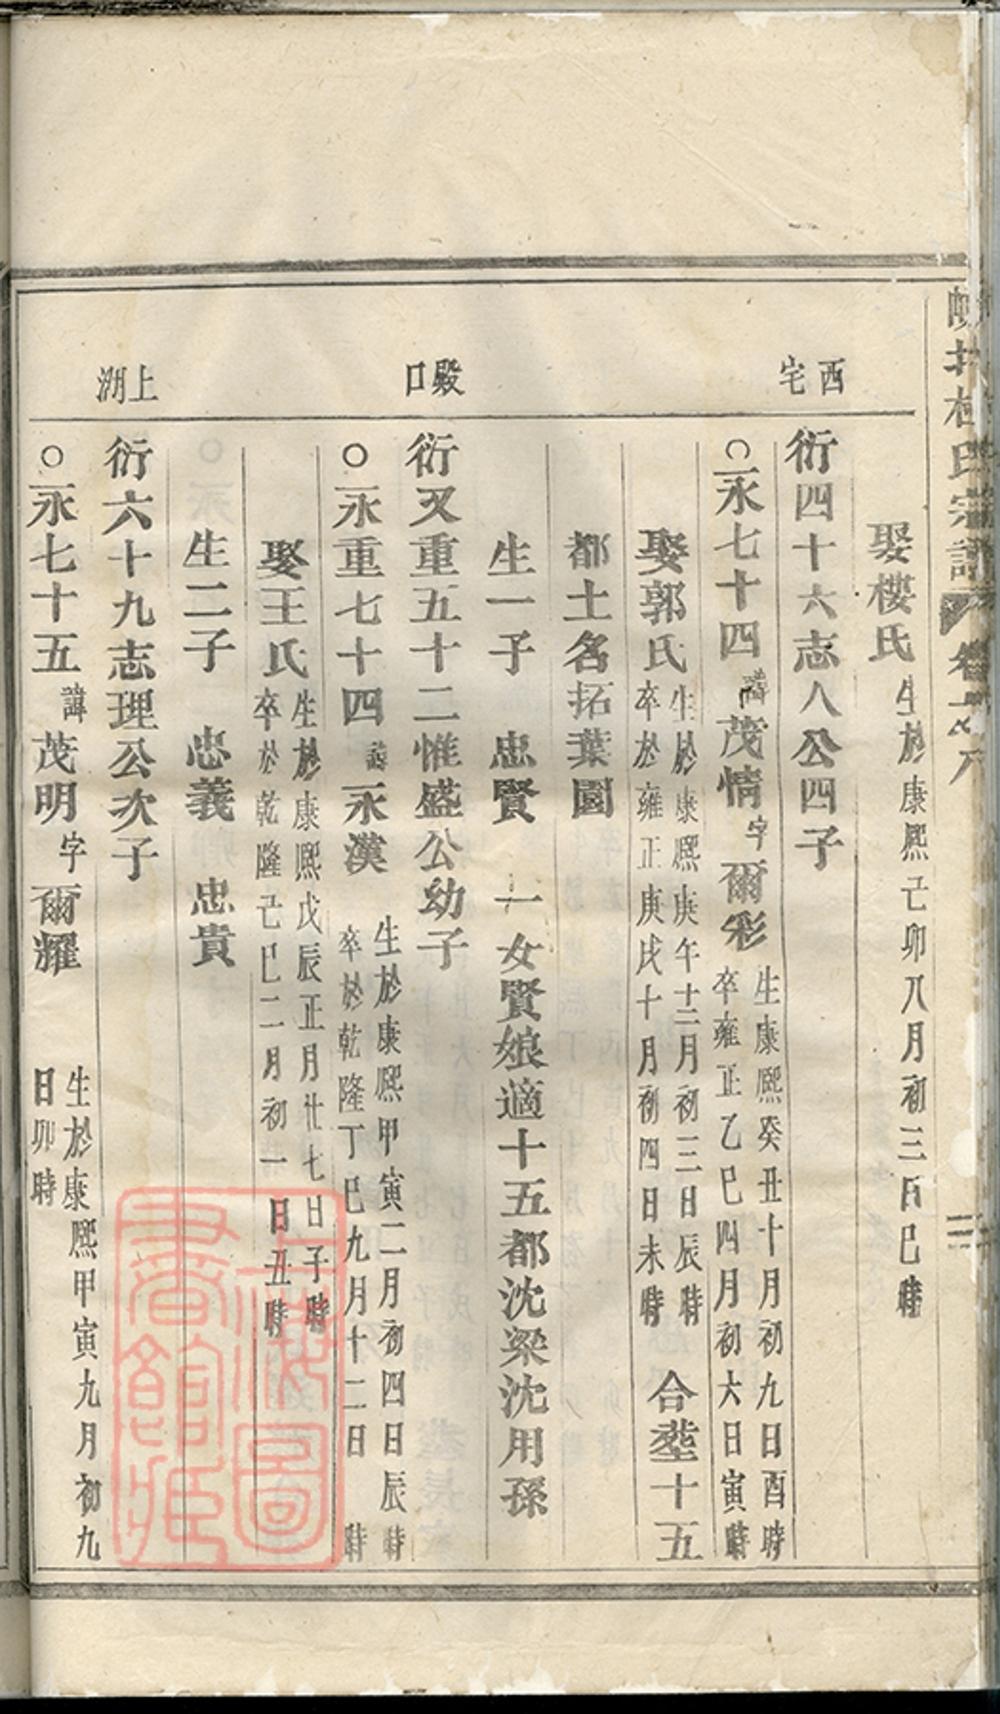 氏宗譜 卷
娶樓氏 生於康熙己卯八月初三日巳時
西宅
衍四十六志八公四子
○永七十四 諱 茂情 字 爾彩 生康熙癸丑十月初九日酉時 卒雍正乙巳四月初六日寅時
娶郭氏 生於康熙庚午十二月初三日辰時 卒於雍正庚戌十月初四日未時 合塟十五
都土名拓葉園
生一子 忠賢 一女賢娘適十五都沈梁沈用孫
殿口
衍又重五十二惟盛公幼子
○永重七十四 諱 永漢 生於康熙甲寅二月初四日辰時 卒於乾隆丁巳九月十二日 時
娶王氏 生於康熙戊辰正月廿七日子時 卒於乾隆己巳二月初一日丑時
生二子 忠義 忠貴
上湖
衍六十九志理公次子
○永七十五 諱 茂明 字 爾耀 生於康熙甲寅九月初九日卯時
上海圖書館藏